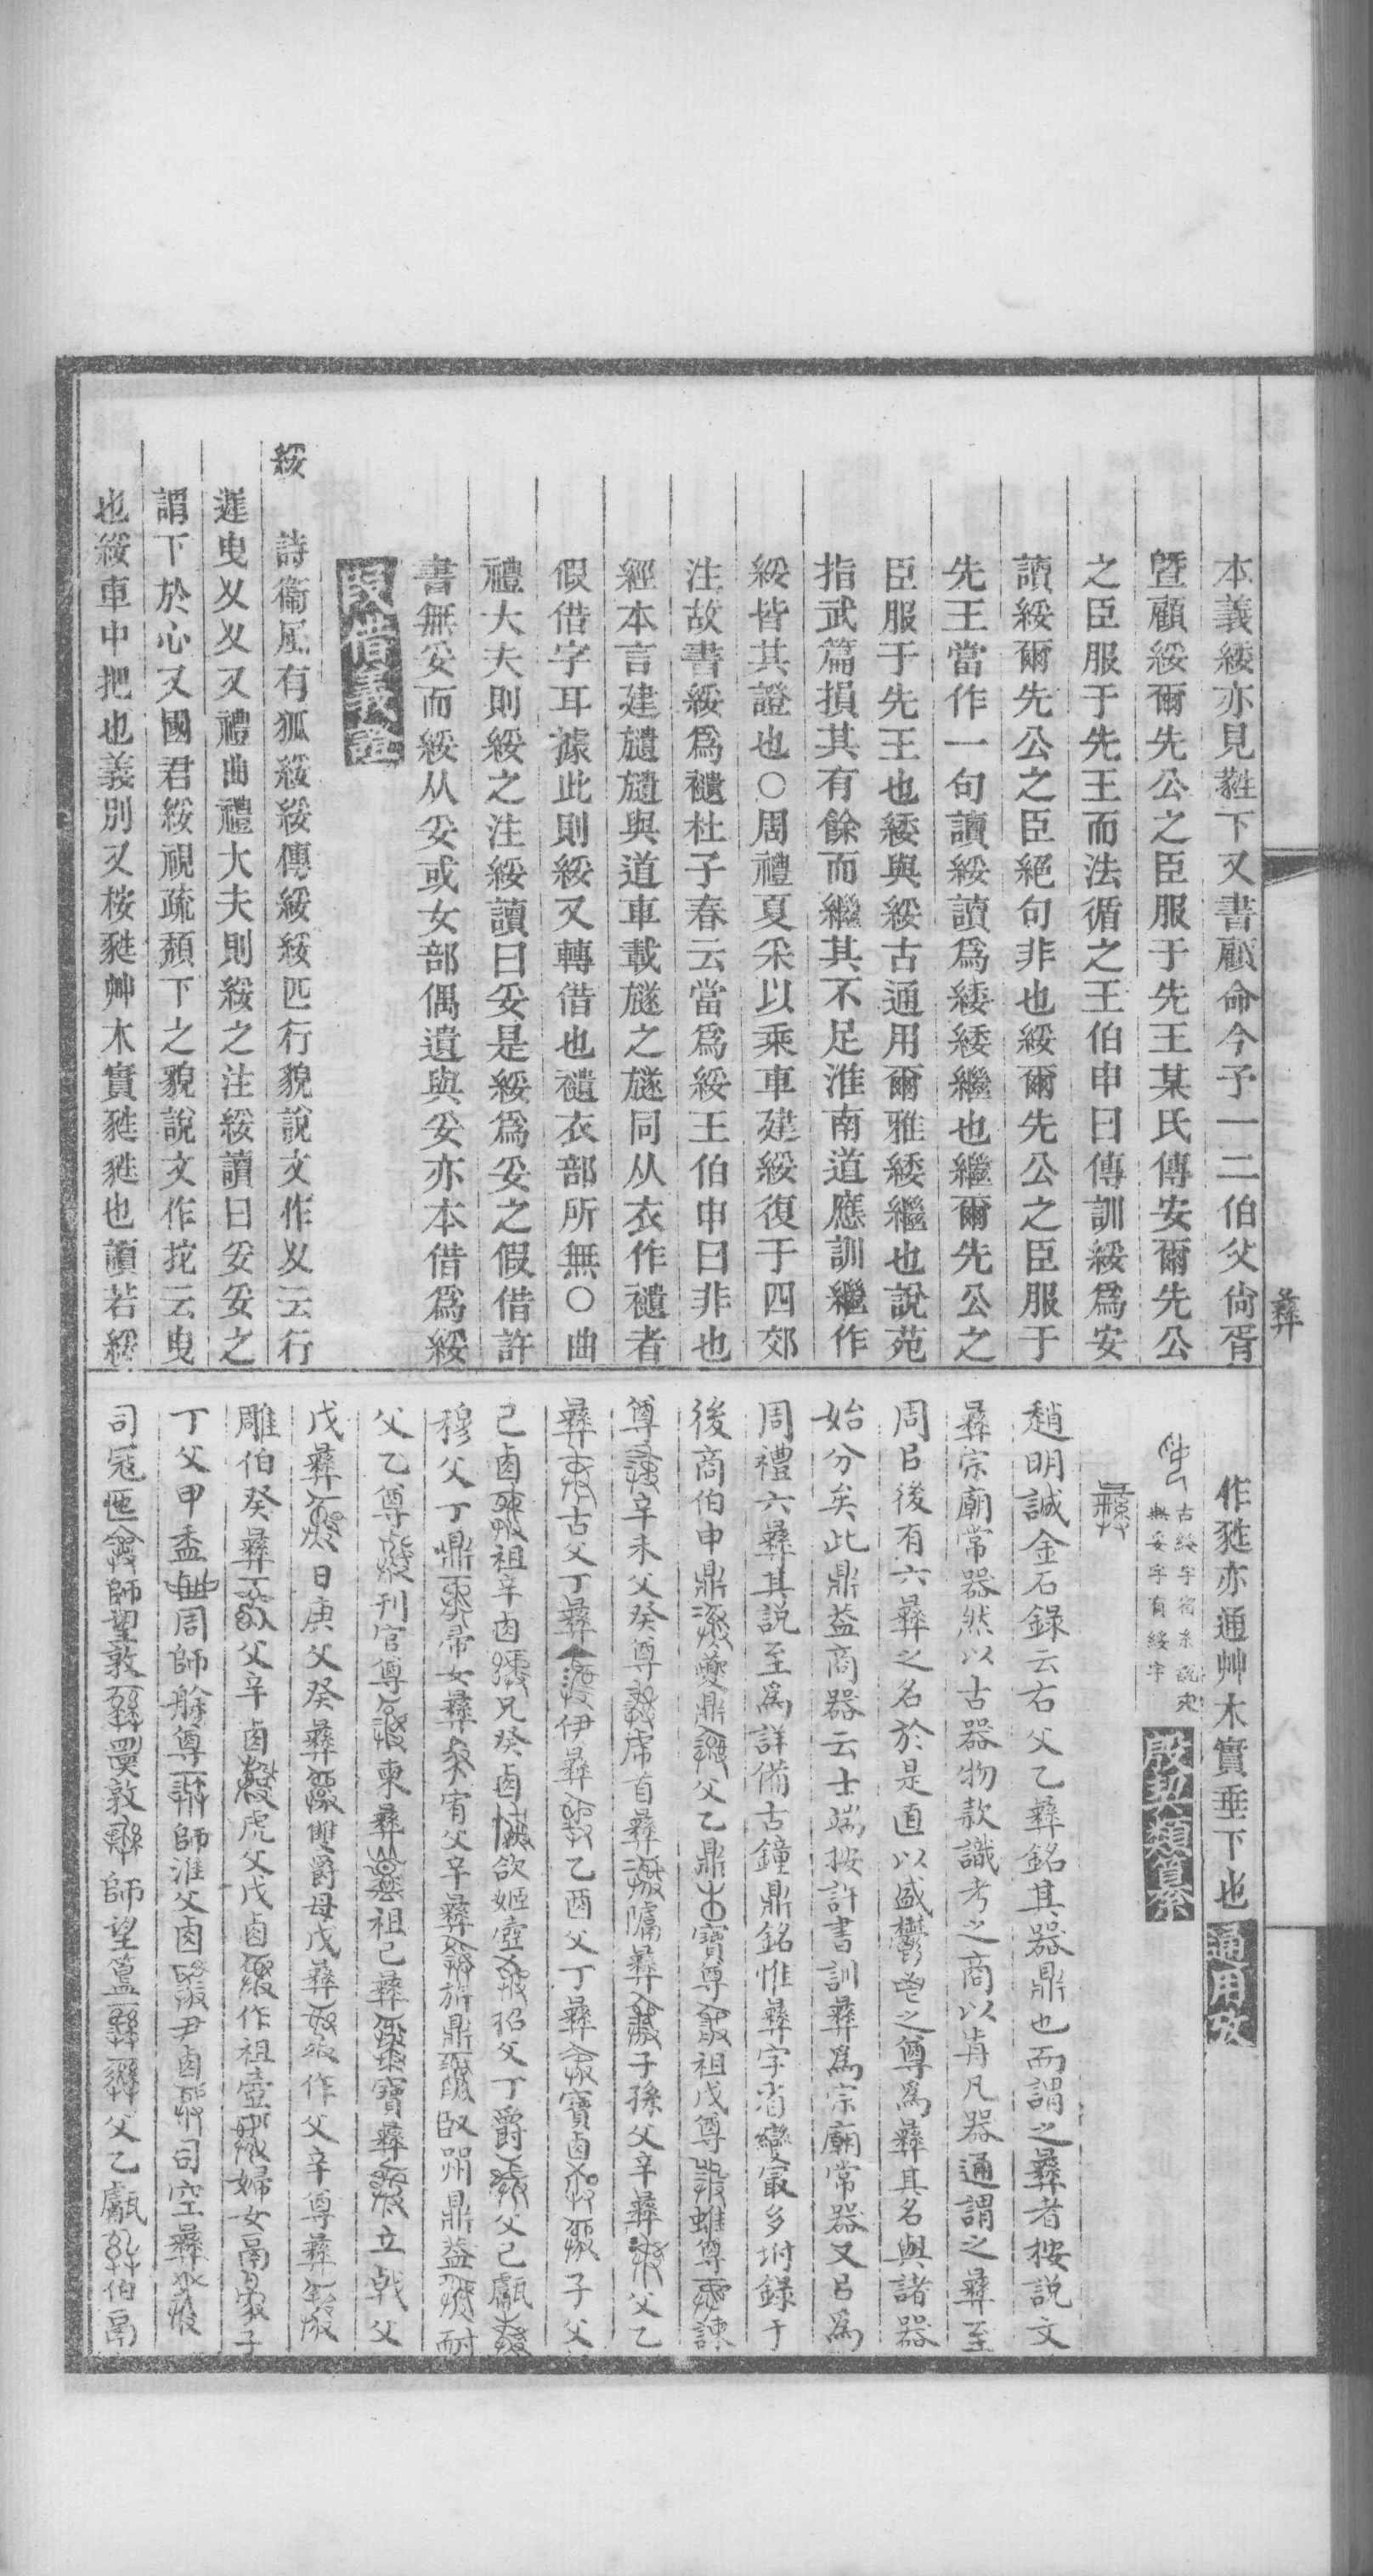 本義綏亦見甤下又書顧命今予一二伯父尙胥
曁顧綏爾先公之臣服于先王某氏傳安爾先公
之臣服于先王而法循之王伯申曰傳訓綏爲安
讀綏爾先公之臣絕句非也綏爾先公之臣服于
先王當作一句讀綏讀爲緌緌繼也繼爾先公之
臣服于先王也緌與綏古通用爾雅緌繼也說苑
指武篇損其有餘而繼其不足淮南道應訓繼作
綏皆其證也○周禮夏采以乘車建綏復于四郊
注故書綏爲䙡杜子春云當爲綏王伯申曰非也
經本言建旞旞與道車載旞之旞同从衣作䙡者
假借字耳據此則綏又轉借也䙡衣部所無○曲
禮大夫則綏之注綏讀曰妥是綏爲妥之假借許
書無妥而綏从妥或女部偶遺與妥亦本借爲綏
段借義證
綏　詩衞風有狐綏綏傳綏綏匹行貌說文作夊云行
遲曳夊夊又禮曲禮大夫則綏之注綏讀曰妥妥之
謂下於心又國君綏視疏頽下之貌說文作拕云曳
也綏車中把也義別又桉甤艸木實甤甤也讀若綏
作甤亦通艸木實垂下也 通用攷
古綏字省糸說文無妥字有綏字 殷契類纂
彝
趙明誠金石錄云右父乙彝銘其器鼎也而謂之彝者桉說文
彝宗廟常器然以古器物款識考之商以歬凡器通謂之彝至
周㠯後有六彝之名於是直以盛鬱鬯之尊爲彝其名與諸器
始分矣此鼎葢商器云士端按許書訓彝爲宗廟常器又㠯爲
周禮六彝其說至爲詳備古鐘鼎銘惟彝字省變㝡多坿錄于
後商伯申鼎 鼎 父乙鼎 寶尊 祖戊尊 尊 諫
尊 辛未父癸尊 虎首彝 彝 子孫父辛彝 父乙
彝 古父丁彝 伊彝 乙酉父丁彝 寶卣 子父
己卣 祖辛卣 兄癸卣 欲姬壺 招父丁爵 父己甗
穆父丁鼎 帚女彝 宥父辛彝 旂鼎 鼎葢
父乙尊 刊官尊 柬彝 祖己彝 寶彝 立戟父
戊彝 日庚父癸彝 雙爵母戊彝 作父辛尊彝
雕伯癸彝 父辛卣 虎父戊卣 作祖壺 婦女鬲 子
丁父甲盉 周師艅尊 師淮父卣 尹卣 司空彝
司寇匜 師望敦 敦 師望簋 父乙甗 伯鬲
彝